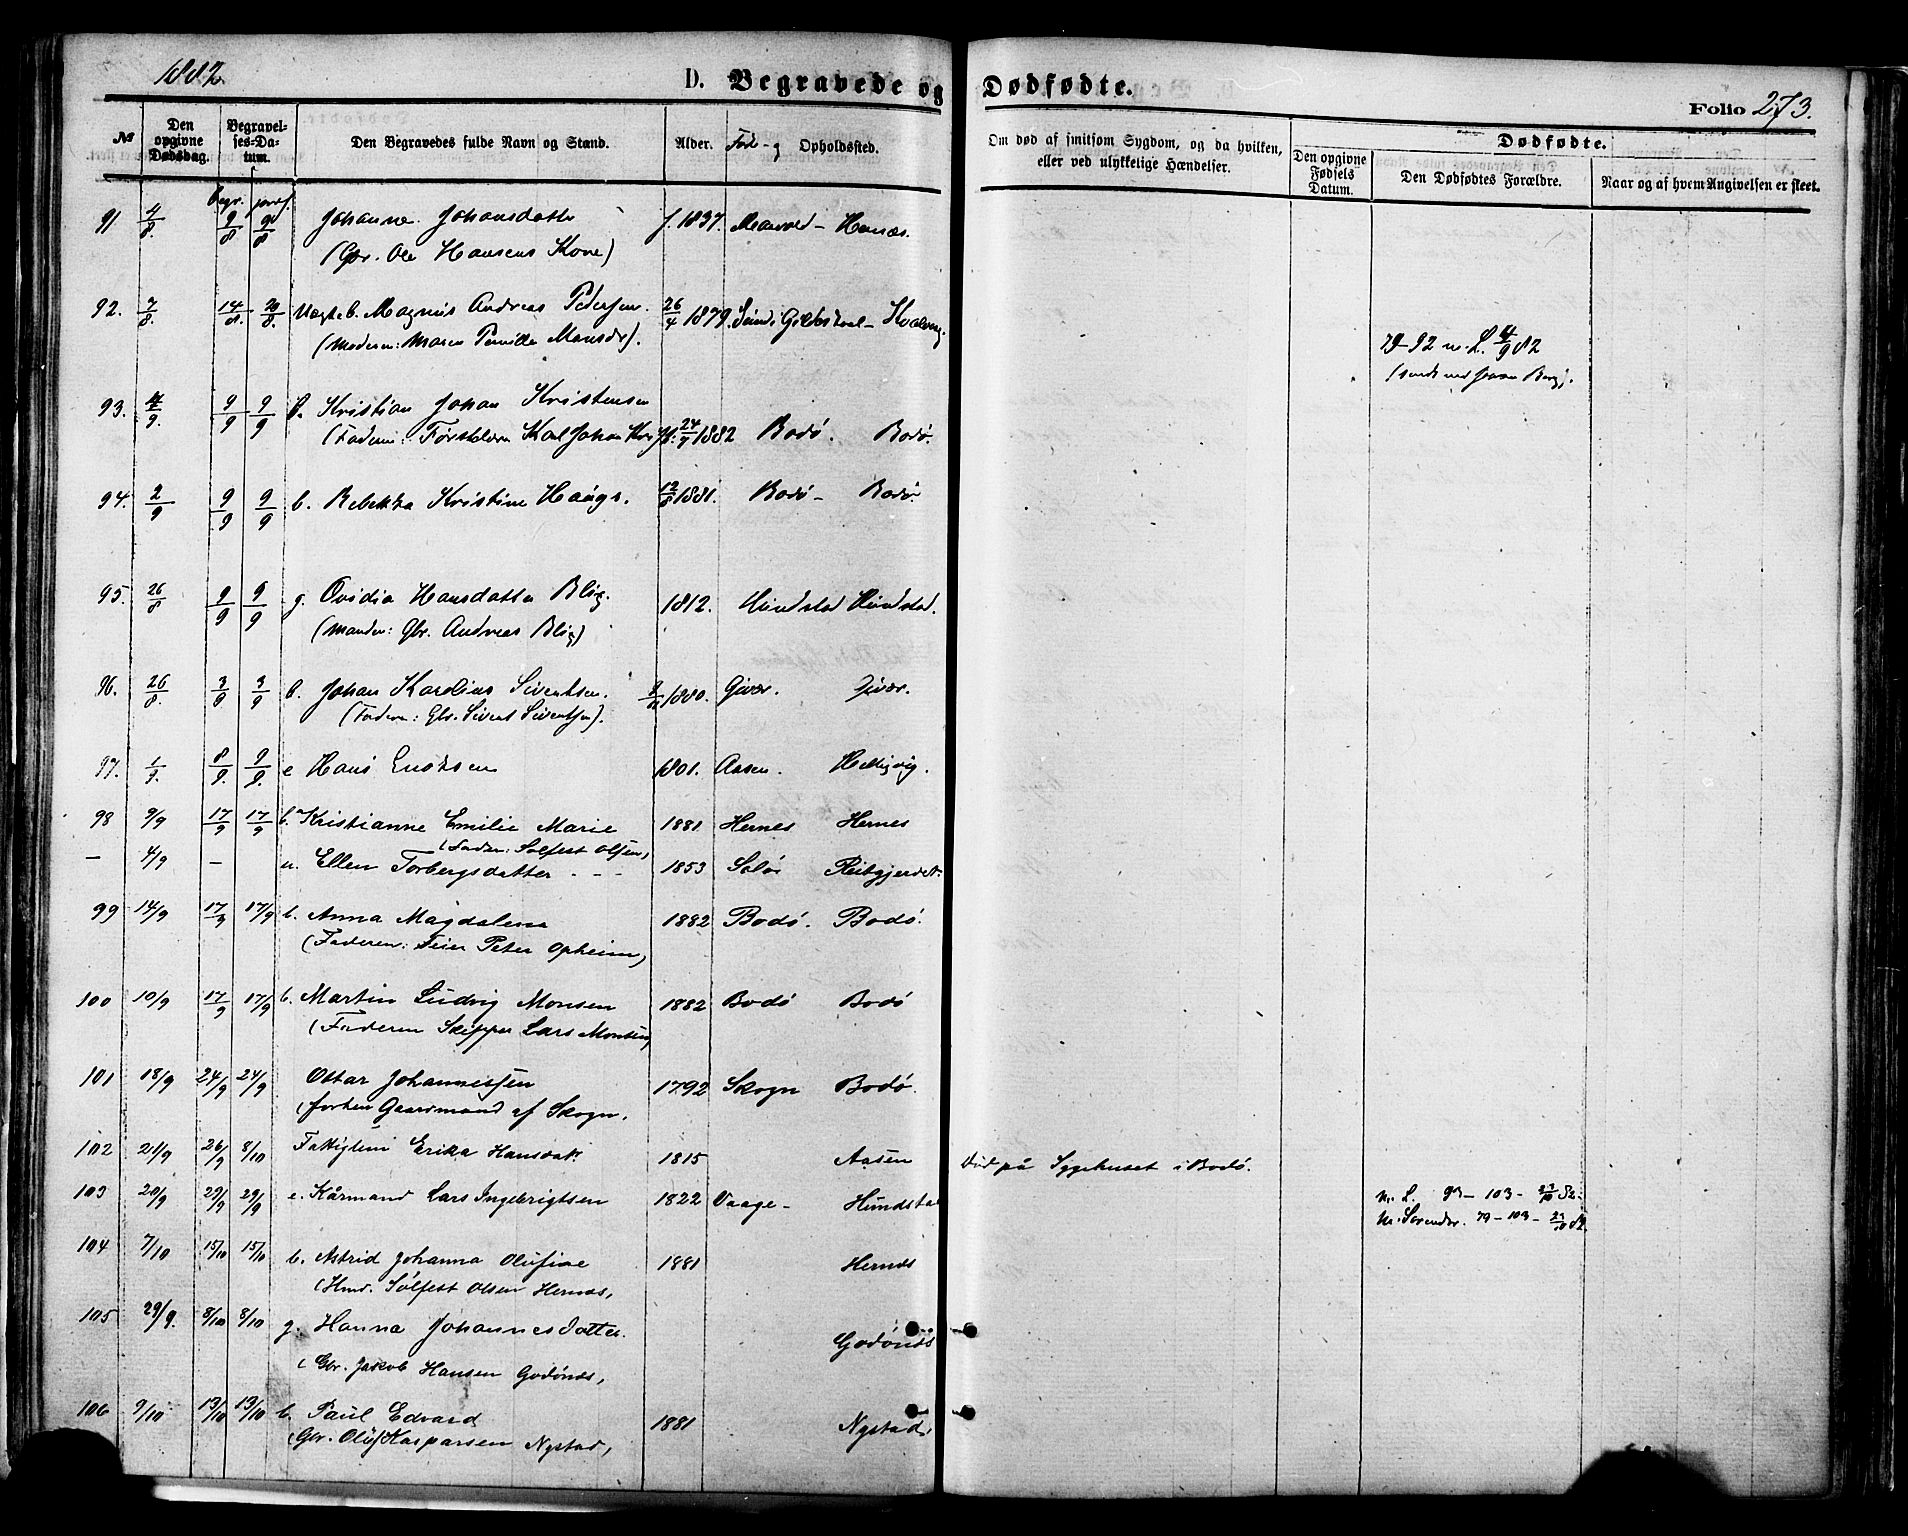 1882.
D. Begravede og Dødfødte.
Folio 273.
№
Den opgivne Dødsdag.
Begravelses-Datum.
Den Begravedes fulde Navn og Stand.
Alder.
Føde- og Opholdssted.
Om død af smitsom Sygdom, og da hvilken, eller ved ulykkelige Hændelser.
Dødfødte.
Den opgivne Fødsels Datum.
Den Dødfødtes Forældre.
Naar og af hvem Angivelsen er skeet.
begr. jordf.
91 4/8. 9/8 9/8 Johanne Johansdatter f. 1837. Hernæs.
(Gbr. Ole Hansens Kone)
92. 7/8. 14/8. 20/8. Uægte b. Magnus Andreas Pedersen. 26/4 1879. Gildeskaal - Kvalvog.
(Moderen: Maren Pernille Monsdr).
79-92 m. L. 4/9 82
93. 4/9. 9/9 9/9 b. Kristian Johan Kristensen
(Faderen: Karl Johan 24/7 1882 Bodø. Bodø.
94. 2/9 9/9 9/9 b. Rebekka Kristine Haugs. 12/8 1881. Bodø - Bodø
95. 26/8 9/9 9/9 g. Ovidia Hansdatter Blix. 1812. Hundstad Hundstad.
(Manden: Gbr. Andreas Blix)
96. 26/8. 3/9 3/9 b. Johan Karolius Sivertsen. 1880. Givær. Givær.
(Faderen: Gbr. Sivert Sivertsen).
97. 1/9. 8/9. 9/9. e Hans Enoksen 1801. Aasen. Helligvig.
98 9/9 17/9 17/9 b. Kristianne Emilie Marie 1881 Hernes Hernes
(Fader: Sølfest Olsen,
- 4/9 - u. Ellen Torbergsdatter - - - 1853 Reitgjerdet.
99 14/9 17/9 17/9 b. Anna Magdalena 1882 Bodø. Bodø.
(Faderen: Feier Peter Opheim,
100 10/9 17/9 17/9 b. Martin Ludvig Monsen 1882 Bodø Bodø
(Faderen Skipper Lars Monsen,
101 18/9 24/9 24/9 Ottar Johannessen 1792 Skogn Bodø.
(forhen Gaardmand af Skogn.
102 21/9 26/9 8/10 Fattiglem Erika Hansdatt. 1815 Aasen Død på Sygehuset i Bodø.
103 20/9 29/9 29/9 e. Kårmand Lars Ingebrigtsen 1822 Vaage - Hundstad
m. L. 93 - 103 - 23/10 82.
79 - 103 - 23/10 82.
104 7/10 15/10 15/10 b. Astrid Johanna Olufine 1881 Hernes
(Hmd. Sølfest Olsen Hernes,
105 29/9. 8/10 8/10 g. Hanna Johannesdatter. Godønes
(Gbr. Jakob Hansen Godønes,
106 9/10 13/10 13/10 b. Paul Edvard 1881 Nystad,
(Gbr. Oluf Kaspersen Nystad,